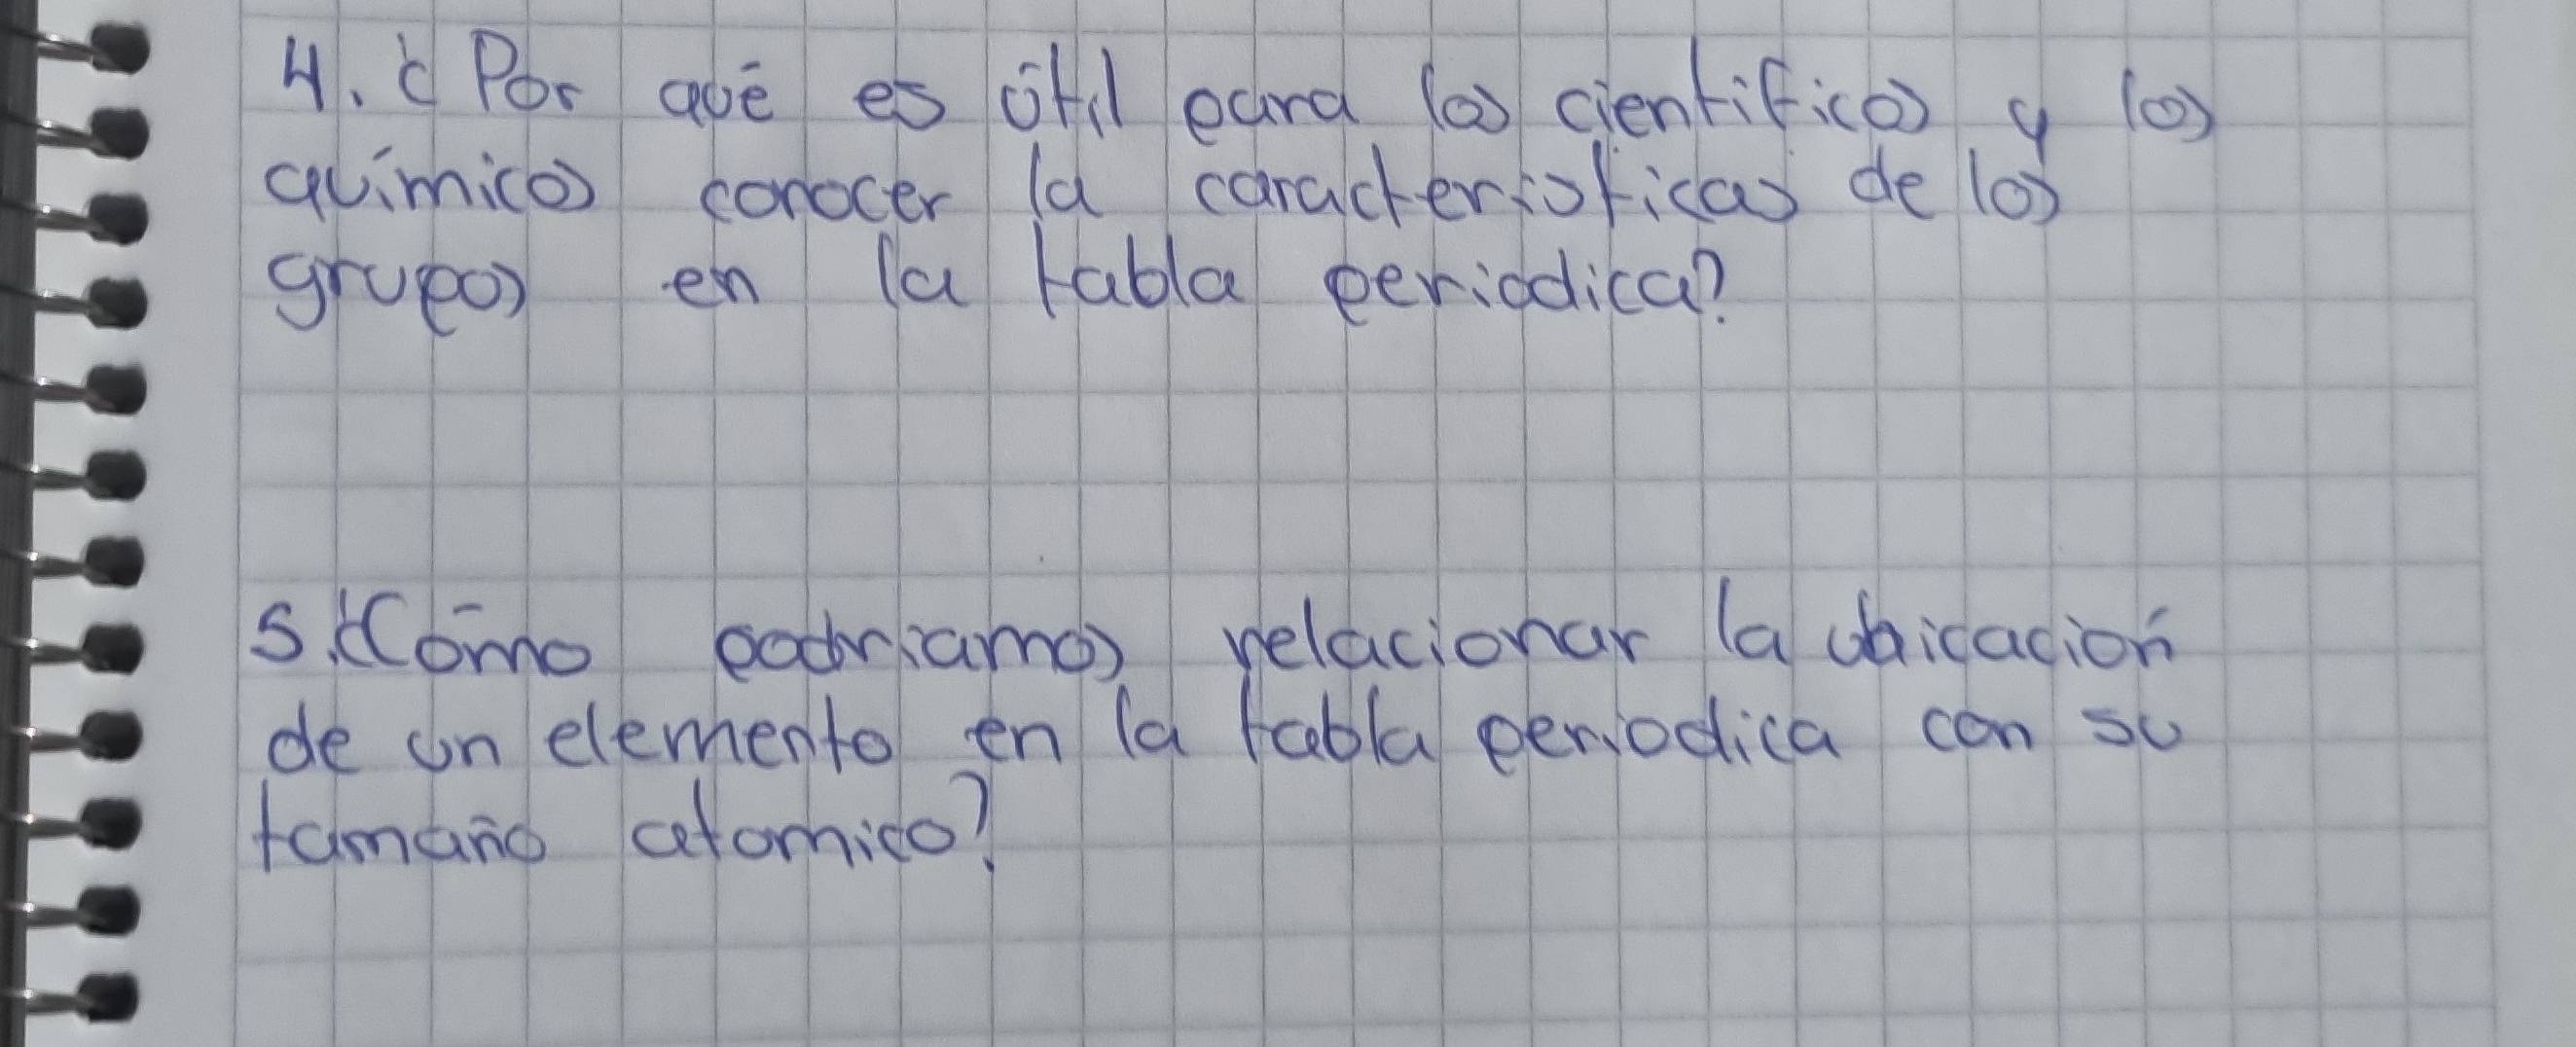 4. ¿Por qué es útil para los cientificos y los
químicos conocer la caracteristicas de los
grupos en la tabla periodica?
5. ¿Cómo podriamos relacionar la ubicación
de un elemento en la tabla periodica con su
tamaño atomico?